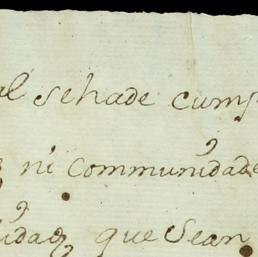 al sehade cump
ni communidade
idad que Sean